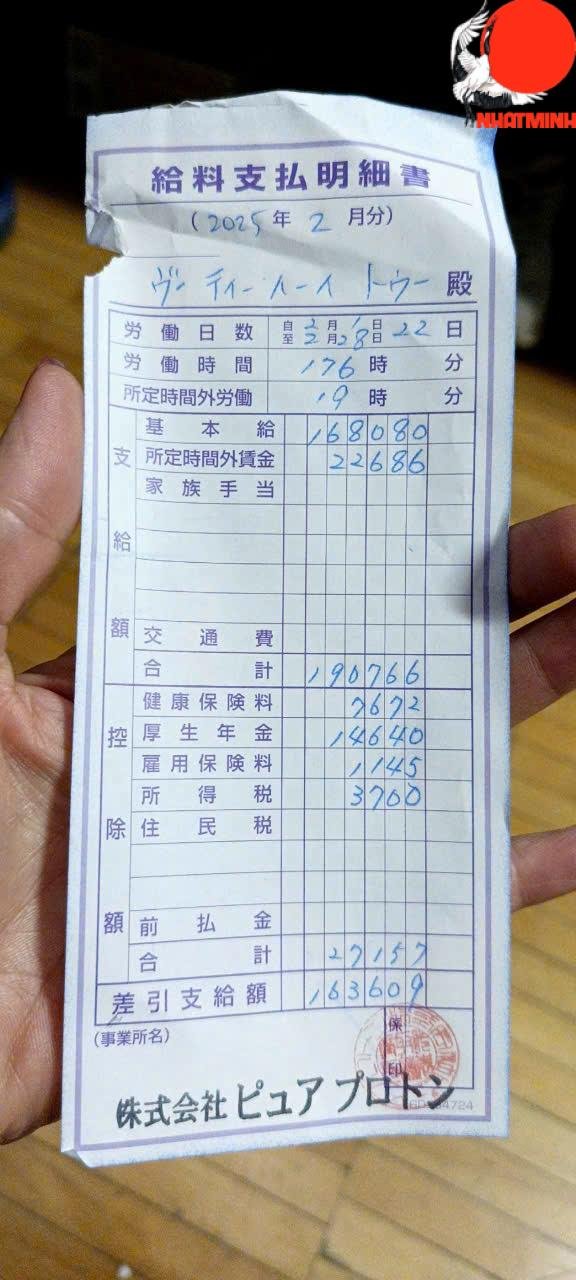 NHATMINH
給料支払明細書
(2025年 2月分)
ヴー ティー ハーイ トゥー 殿
労働日数 自 2月1日 至 2月28日 22日
労働時間 176時 分
所定時間外労働 19時 分
支給額
基本給 168080
所定時間外賃金 22686
家族手当
交通費
合計 190766
控除額
健康保険料 7672
厚生年金 14640
雇用保険料 1145
所得税 3700
住民税
前払金
合計 27157
差引支給額 163609
(事業所名)
係印
株式会社ピュアプロトン